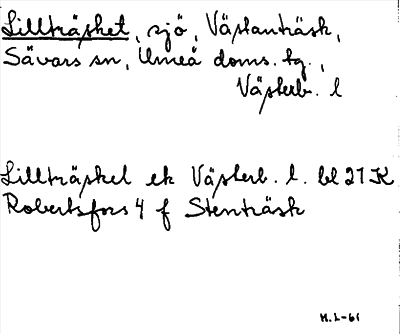 Lillträsket, sjö, Västanträsk,
Sävars sn, Umeå doms. tg.,
Västerb. l
Lillträsket ek Västerb. l. bl 21 K
Robertsfors 4 f Stenträsk
M.L-61